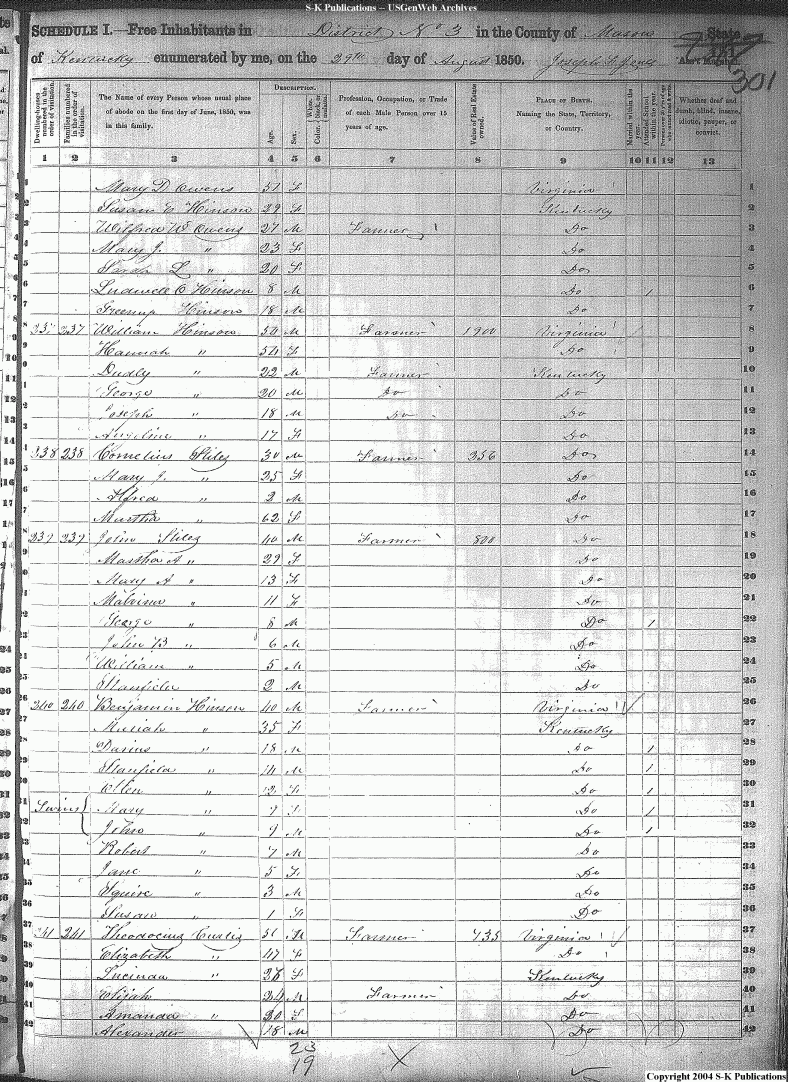 S-K Publications -- USGenWeb Archives
SCHEDULE I.—Free Inhabitants in District No 3 in the County of Mason State
of Kentucky enumerated by me, on the 29th day of August 1850. Joseph F. Jones Ass't Marshal
301
Dwelling-houses numbered in the order of visitation.
Families numbered in the order of visitation.
The Name of every Person whose usual place of abode on the first day of June, 1850, was in this family.
Description.
Age.
Sex.
Color, White, black, or mulatto.
Profession, Occupation, or Trade of each Male Person over 15 years of age.
Value of Real Estate owned.
Place of Birth. Naming the State, Territory, or Country.
Married within the year.
Attended School within the year.
Whether deaf and dumb, blind, insane, idiotic, pauper, or convict.
1 2 3 4 5 6 7 8 9 10 11 12 13
1 Mary D Owens 51 F Virginia 1
2 Susan E Hinson 29 F Kentucky 2
3 Wilfred W Owens 27 M Farmer Do 3
4 Mary J. " 23 F Do 4
5 Sarah L " 20 F Do 5
6 Ludwell C Hinson 8 M Do 1 6
7 Greenup Hinson 18 M Do 7
8 237 237 William Hinson 50 M Farmer 1900 Virginia 8
9 Hannah " 54 F Do 9
10 Dudly " 22 M Farmer Kentucky 10
11 George " 20 M Do Do 11
12 Joseph " 18 M Do Do 12
13 Angeline " 17 F Do 13
14 238 238 Cornelius Stiles 30 M Farmer 256 Do 14
15 Mary J. " 25 F Do 15
16 Alfred " 2 M Do 16
17 Martha " 62 F Do 17
18 239 239 John Stiles 40 M Farmer 800 Do 18
19 Martha A " 29 F Do 19
20 Mary A " 13 F Do 20
21 Malvina " 11 F Do 21
22 George " 8 M Do 1 22
23 John B " 6 M Do 23
24 William " 5 M Do 24
25 Stanfield " 2 M Do 25
26 240 240 Benjamin Hinson 40 M Farmer Virginia 26
27 Muriah " 35 F Kentucky 27
28 Darius " 18 M Do 1 28
29 Stanfield " 14 M Do 1 29
30 Ellen " 12 F Do 1 30
31 Twins { Mary " 9 F Do 1 31
32 John " 9 M Do 1 32
33 Robert " 7 M Do 33
34 Jane " 5 F Do 34
35 Squire " 3 M Do 35
36 Susan " 1 F Do 36
37 241 241 Theodocius Curtis 51 M Farmer 735 Virginia 37
38 Elizabeth " 47 F Do 38
39 Lucinda " 26 F Kentucky 39
40 Elijah 24 M Farmer Do 40
41 Amanda " 20 F Do 41
42 Alexander 18 M Do 42
23
19
Copyright 2004 S-K Publications